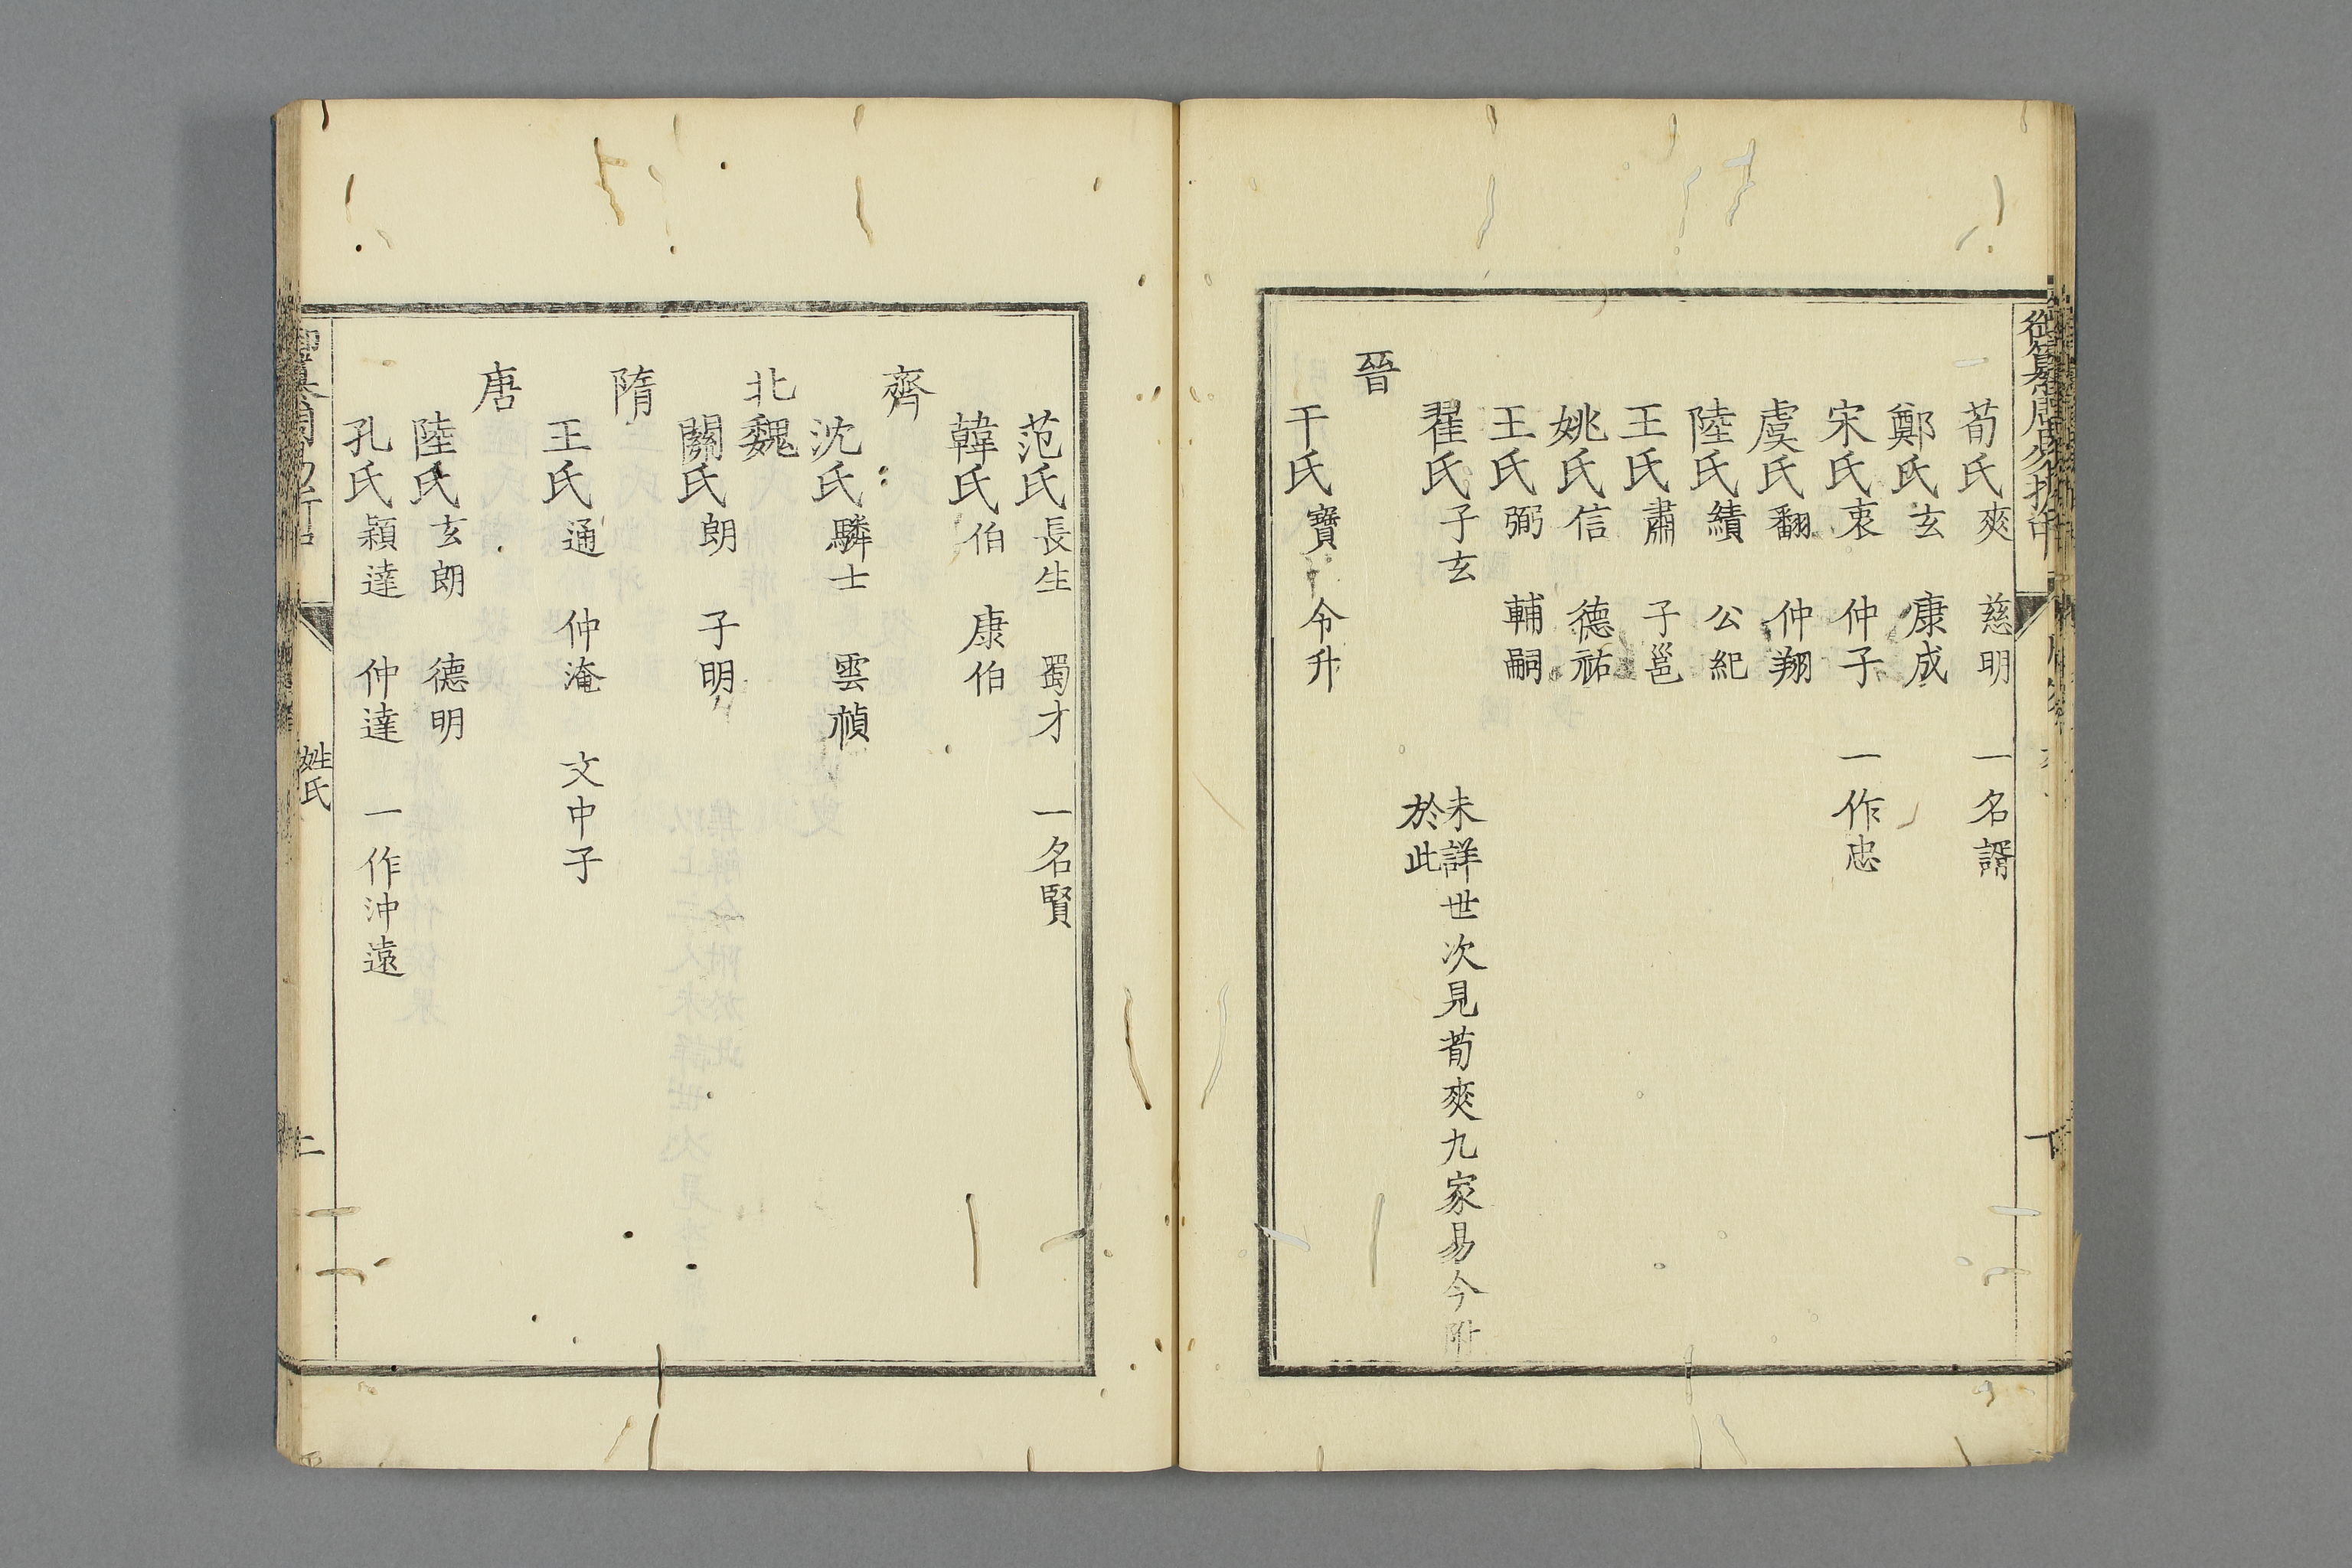 御纂周易折中
荀氏爽 慈明 一名諝
鄭氏玄 康成
宋氏衷 仲子 一作忠
虞氏翻 仲翔
陸氏績 公紀
王氏肅 子邕
姚氏信 德祐
王氏弼 輔嗣
翟氏子玄 未詳世次見荀爽九家易今附
於此
晉
干氏寶 令升
范氏長生 蜀才 一名賢
韓氏伯 康伯
齊
沈氏驎士 雲禎
北魏
關氏朗 子明
隋
王氏通 仲淹 文中子
唐
陸氏玄朗 德明
孔氏穎達 仲達 一作沖遠
姓氏